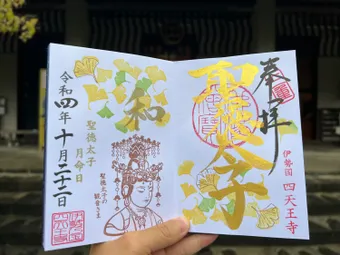 奉拝
聖徳太子
伊勢国 四天王寺
和
聖徳太子
月命日
令和四年十月二十二日
聖徳太子の
観音さま